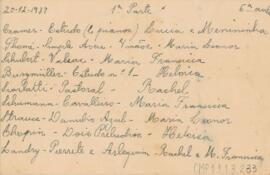 20-12-1939 1ª Parte 6º ano
Cramer - Estudo (2 pianos) Lucia e Menininha
Thomé - Simple Aveu - 4 mãos - Maria Leonor
Schubert - Valsa - Maria Francisca
Burgmüller - Estudo nº 1 - Heloisa
Scarlatti - Pastoral - Rachel
Schumann - Cavaleiro - Maria Francisca
Strauss - Danubio Azul - Maria Leonor
Chopin - Dois Preludios - Heloisa
Landry - Pierrete e Arlequin - Rachel e M. Francisca